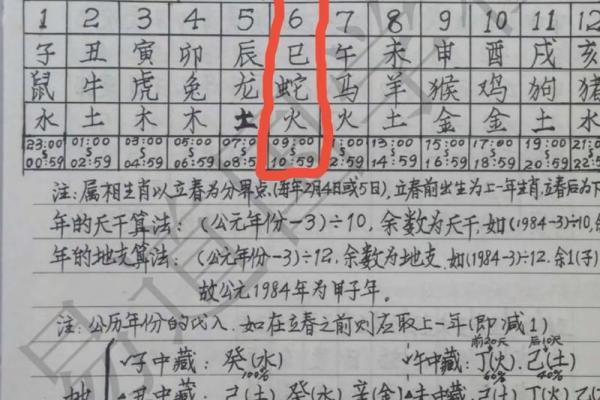 1 2 3 4 5 6 7 8 9 10 11 12
子 丑 寅 卯 辰 巳 午 未 申 酉 戌 亥
鼠 牛 虎 兔 龙 蛇 马 羊 猴 鸡 狗 猪
水 土 木 木 土 火 火 土 金 金 土 水
23:00 01:00 03:00 05:00 07:00 09:00 11:00 13:00 15:00 17:00 19:00 21:00
00:59 02:59 04:59 06:59 08:59 10:59 12:59 14:59 16:59 18:59 20:59 22:59
注:属相生肖以立春为分界点,(每年2月4日或5日),立春前出生为上一年生肖,立春后为下
年的天干算法:(公元年份-3)÷10,余数为天干,如(1984-3)÷10,余
年的地支算法:(公元年份-3)÷12,余数为地支.如(1984-3)÷12.余1(子)
故公元1984年为甲子年。
注:公历年份的代入.如在立春之前则应取上一年(即减1)
前20天 后10天
子中藏:癸(水) 午中藏:丁(火).己(土)
100%
丑中藏:己(土) 癸(水) 辛(金) 未中藏:己(土) 丁(火) 乙
易道国学